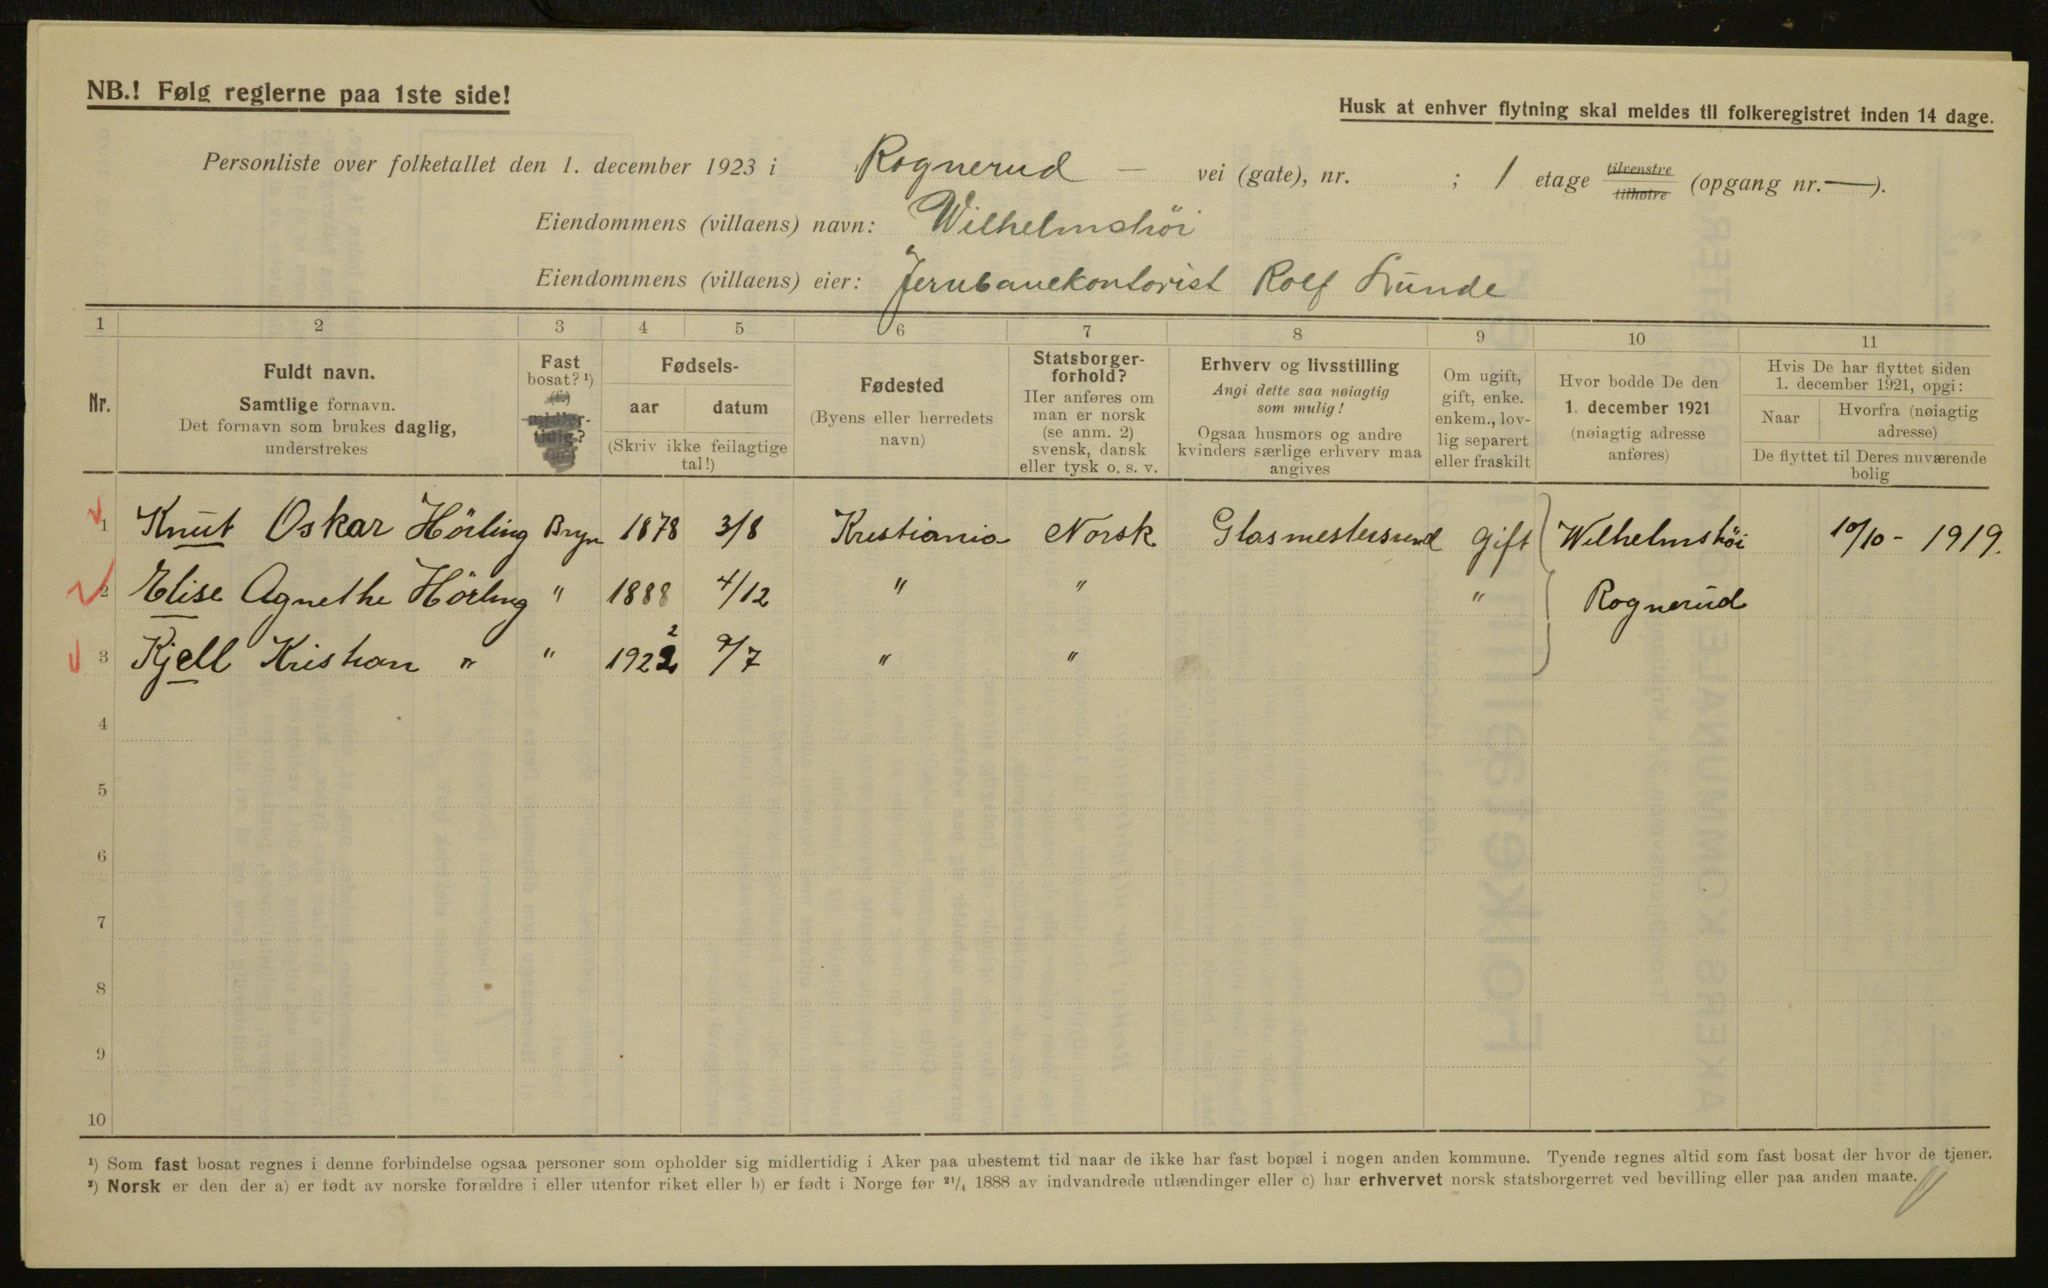 NB.! Følg reglerne paa 1ste side!
Husk at enhver flytning skal meldes til folkeregistret inden 14 dage.
Personliste over folketallet den 1. december 1923 i Rognerud — vei (gate), nr. ; 1 etage tilvenstre tilhøire (opgang nr. —).
Eiendommens (villaens) navn: Wilhelmshöi
Eiendommens (villaens) eier: Jernbanekontorist Rolf Lunde
1 2 3 4 5 6 7 8 9 10 11
Nr.
Fuldt navn.
Samtlige fornavn.
Det fornavn som brukes daglig,
understrekes
Fast
bosat? ¹)
Fødsels-
aar datum
(Skriv ikke feilagtige
tal!)
Fødested
(Byens eller herredets
navn)
Statsborger-
forhold?
Her anføres om
man er norsk
(se anm. 2)
svensk, dansk
eller tysk o. s. v.
Erhverv og livsstilling
Angi dette saa nøiagtig
som mulig!
Ogsaa husmors og andre
kvinders særlige erhverv maa
angives
Om ugift,
gift, enke.
enkem., lov-
lig separert
eller fraskilt
Hvor bodde De den
1. december 1921
(nøiagtig adresse
anføres)
Hvis De har flyttet siden
1. december 1921, opgi:
Naar
Hvorfra (nøiagtig
adresse)
De flyttet til Deres nuværende
bolig
1 Knut Oskar Hörling Bryn 1878 3/8 Kristiania Norsk Glasmestersvend gift Wilhelmshöi 10/10 - 1919.
2 Elise Agnethe Hörling " 1888 4/12 " " " Rognerud
3 Kjell Kristian " " 1922 2 9/7 " "
4
5
6
7
8
9
10
¹) Som fast bosat regnes i denne forbindelse ogsaa personer som opholder sig midlertidig i Aker paa ubestemt tid naar de ikke har fast bopæl i nogen anden kommune. Tyende regnes altid som fast bosat der hvor de tjener.
²) Norsk er den der a) er født av norske forældre i eller utenfor riket eller b) er født i Norge før 21/4 1888 av indvandrede utlændinger eller c) har erhvervet norsk statsborgerret ved bevilling eller paa anden maate.